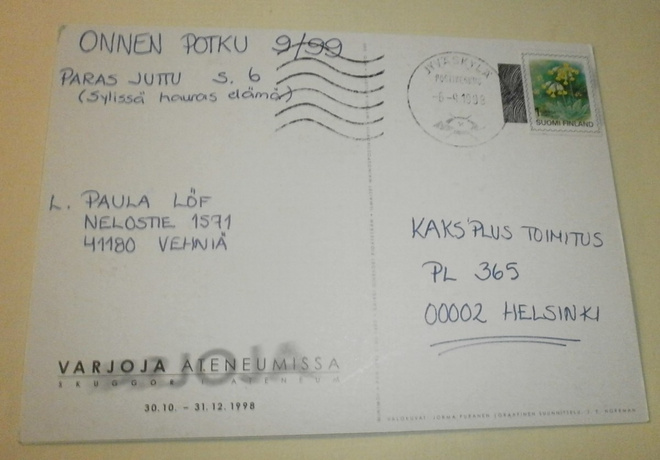 ONNEN POTKU 9/99
PARAS JUTTU S. 6
(Sylissä hauras elämä)
L. PAULA LÖF
NELOSTIE 1571
41180 VEHNIÄ
VARJOJA ATENEUMISSA
SKUGGOR I ATENEUM
30.10. – 31.12.1998
JYVÄSKYLÄ
1
SUOMI FINLAND
KAKS'PLUS TOIMITUS
PL 365
00002 HELSINKI